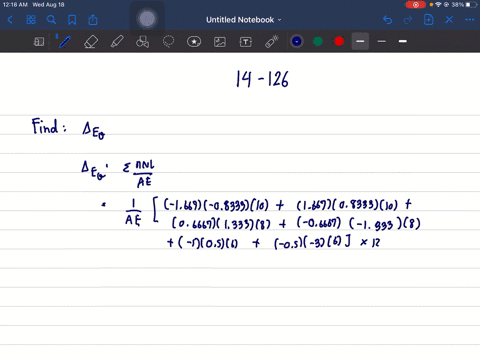 12:18 AM Wed Aug 18
38%
Untitled Notebook
14-126
Find: ΔE_v
ΔE_v: Σ nNL/AE
= 1/AE [ (-1.667)(-0.8333)(10) + (1.667)(0.8333)(10) +
(0.6667)(1.333)(8) + (-0.6667)(-1.333)(8)
+ (-1)(0.5)(6) + (-0.5)(-3)(6) ] × 12